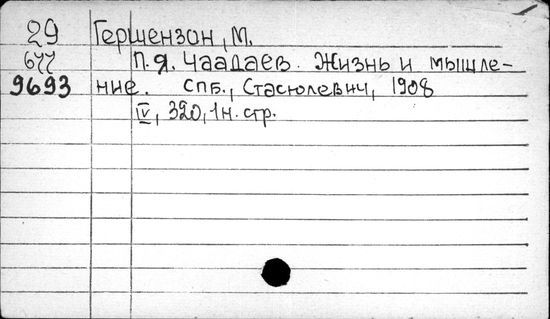 29 Гершензон, М.
677 П.Я. Чаадаев. Жизнь и мышле-
9693 ние. СПб., Стасюлевич, 1908
IV, 320, 1н. стр.